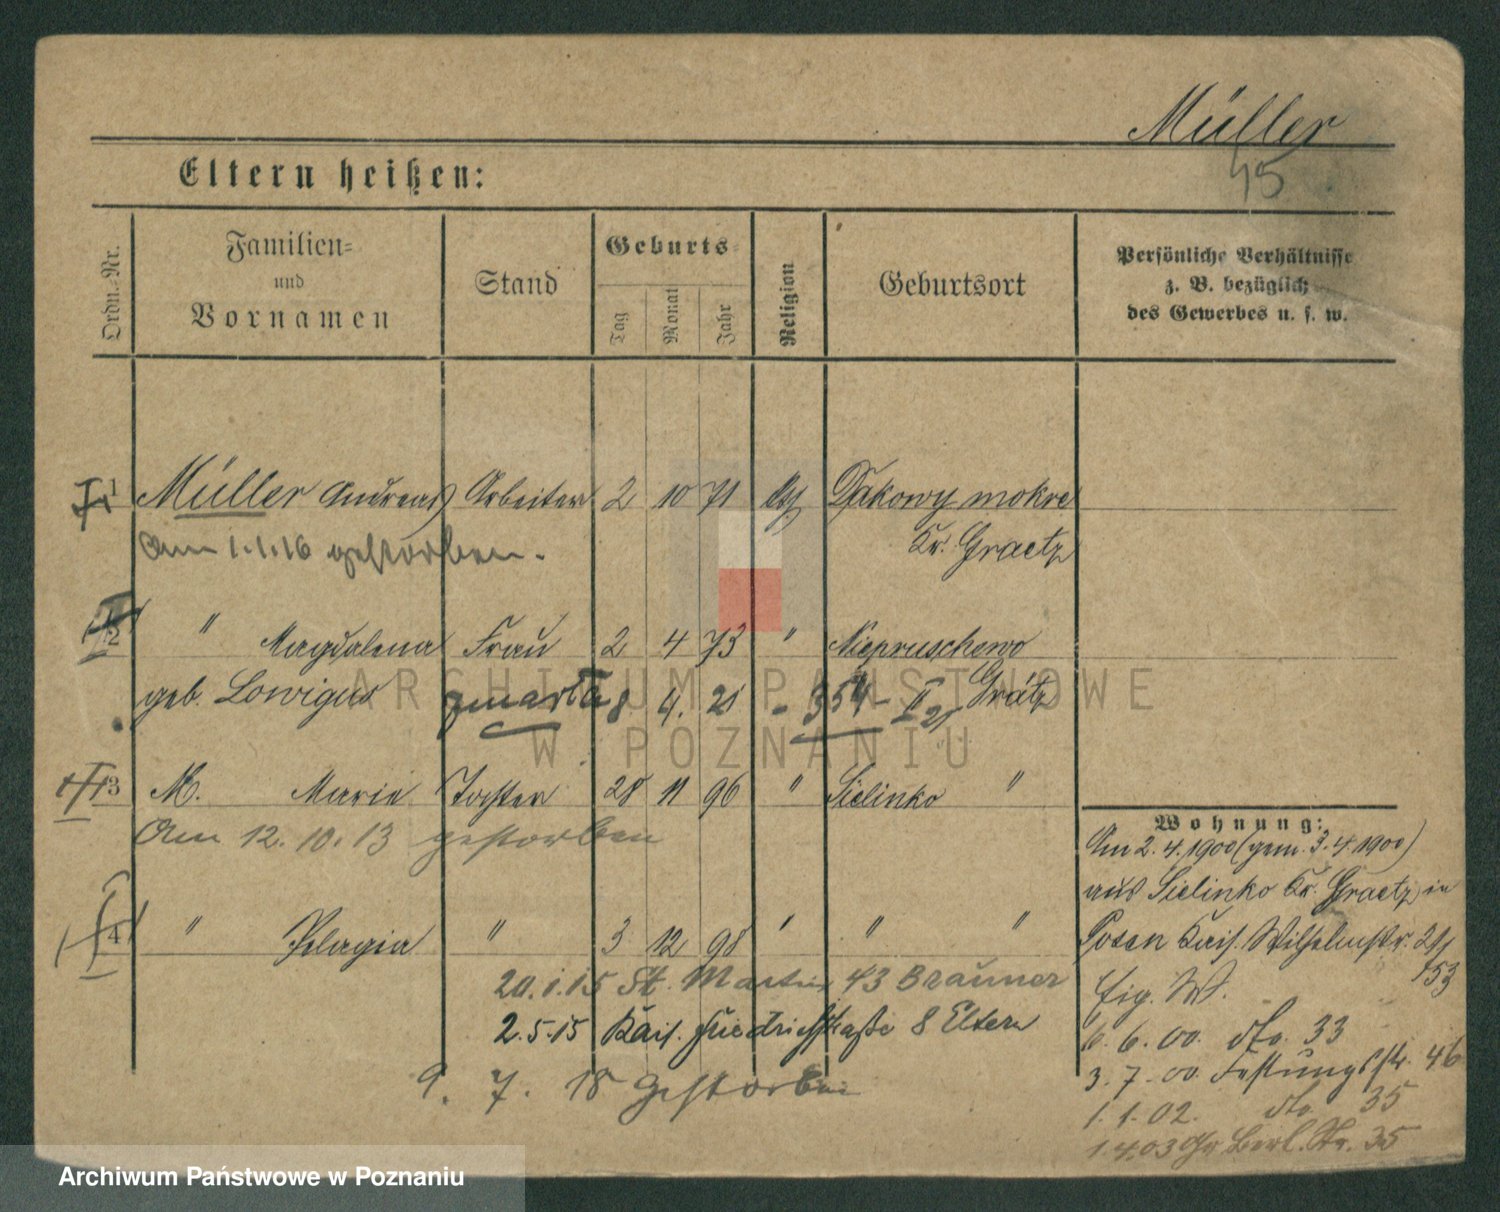 Müller
45
Eltern heißen:
Ordn.-Nr.
Familien- und Vornamen
Stand
Geburts-
Tag
Monat
Jahr
Religion
Geburtsort
Persönliche Verhältnisse
z. B. bezüglich
des Gewerbes u. s. w.
1 Müller Andreas Arbeiter 2 10 71 Dakowy mokre
Am 1.1.16 gestorben.
Kr. Graetz
2 " Magdalena Frau 2 4 73 " Niepruschewo
geb. Lowigus zmarła 8 4. 21 - 354 - II 21 Grätz
3 M. Marie Tochter 28 11 96 " Sielinko "
Am 12.10.13 gestorben
4 " Pelagia " 3 12 98 " " "
20.1.15 St. Martin 43 Brauner
2.5.15 Kais. Friedrichstraße 8 Eltern
9. 7. 18 Gestorben
Wohnung:
Am 2.4.1900 (gem. 3.4.1900)
aus Sielinko Kr. Graetz in
Posen Kais. Wilhelmstr. 29/
53
Eig. W.
6.6.00. dto. 33
3.7.00. Festungsstr. 46
1.1.02. dto. 35
1.4.03 Gr. Berl. Str. 35
ARCHIWUM PAŃSTWOWE
W POZNANIU
Archiwum Państwowe w Poznaniu